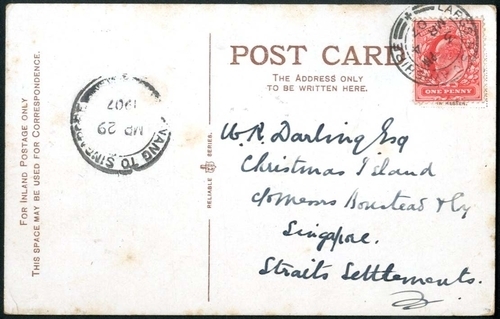 POST CARD
THE ADDRESS ONLY
TO BE WRITTEN HERE.
FOR INLAND POSTAGE ONLY
THIS SPACE MAY BE USED FOR CORRESPONDENCE.
RELIABLE SERIES.
ONE PENNY
MR 29
1907
TO
W. R. Darling Esq
Christmas Island
c/o Messrs Boustead & Co
Singapore.
Straits Settlements.